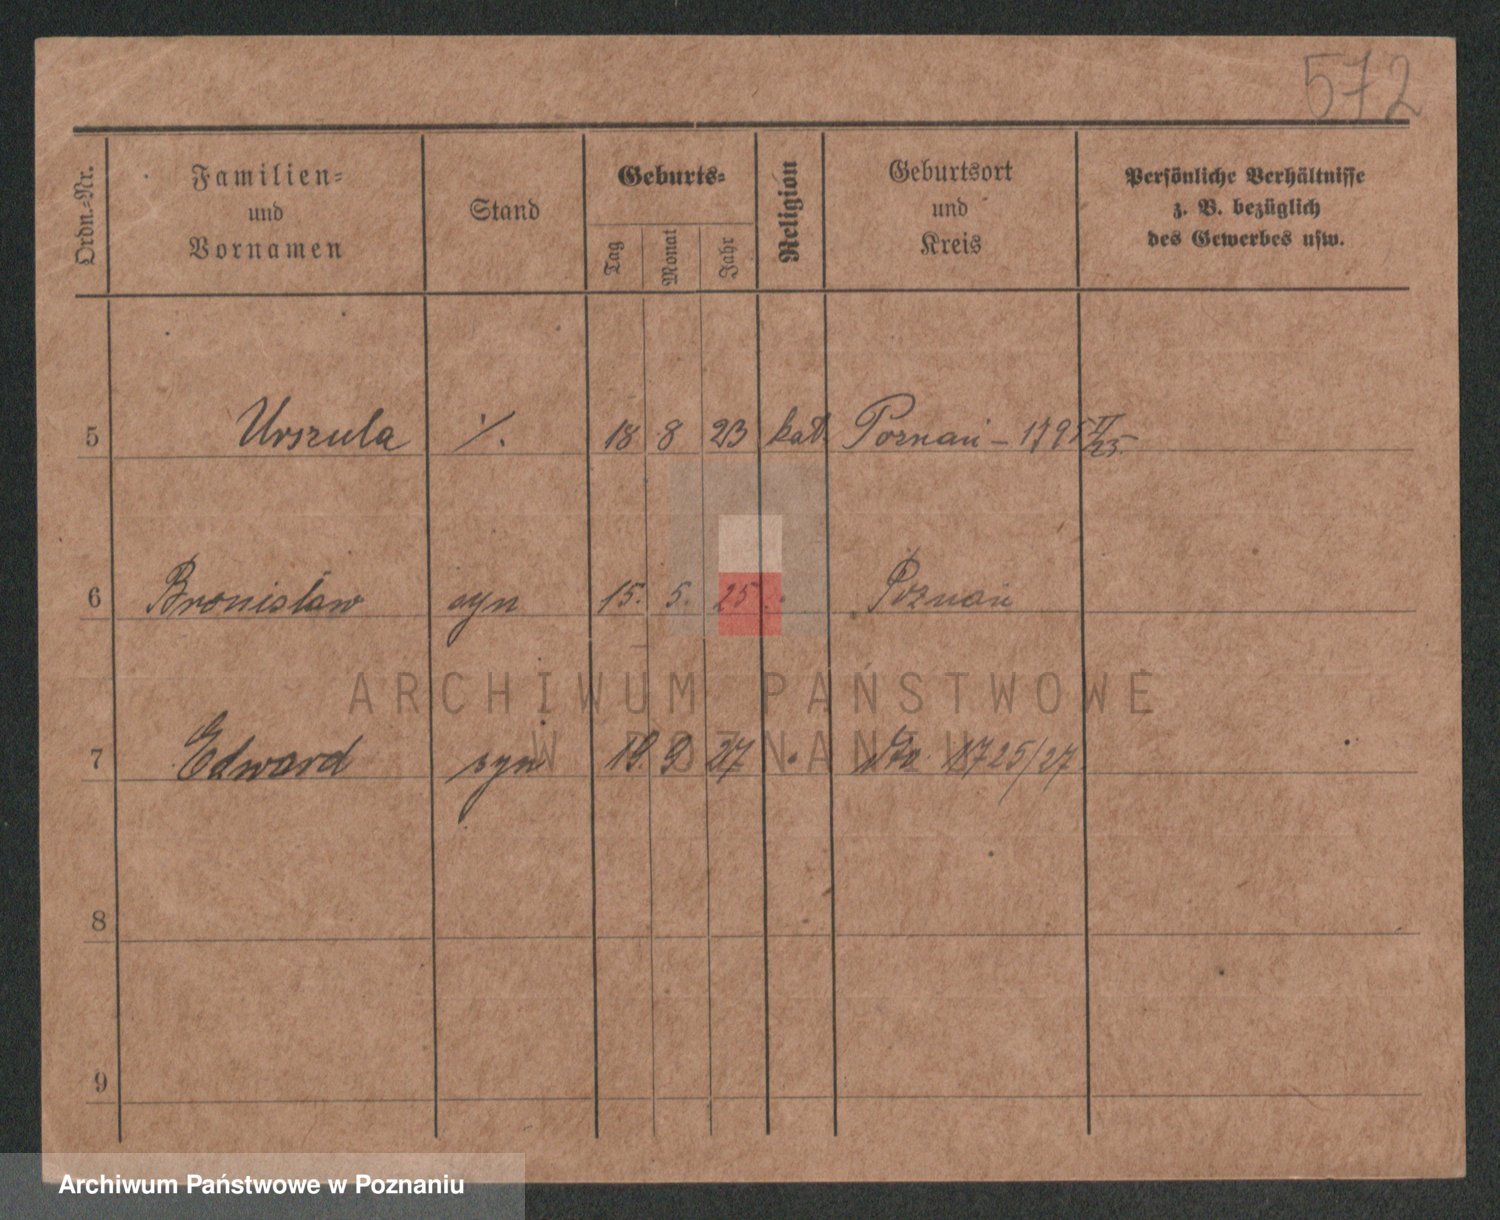 572
Ordn.-Nr.
Familien-
und
Vornamen
Stand
Geburts-
Tag
Monat
Jahr
Religion
Geburtsort
und
Kreis
Persönliche Verhältnisse
z. B. bezüglich
des Gewerbes usw.
5 Urszula ·/. 18 8 23 kat. Poznań – 179
6 Bronisław syn 15. 5. 25 Poznań
ARCHIWUM PAŃSTWOWE
W POZNANIU
7 Edward syn 19. 9 27 1725/27
8
9
Archiwum Państwowe w Poznaniu